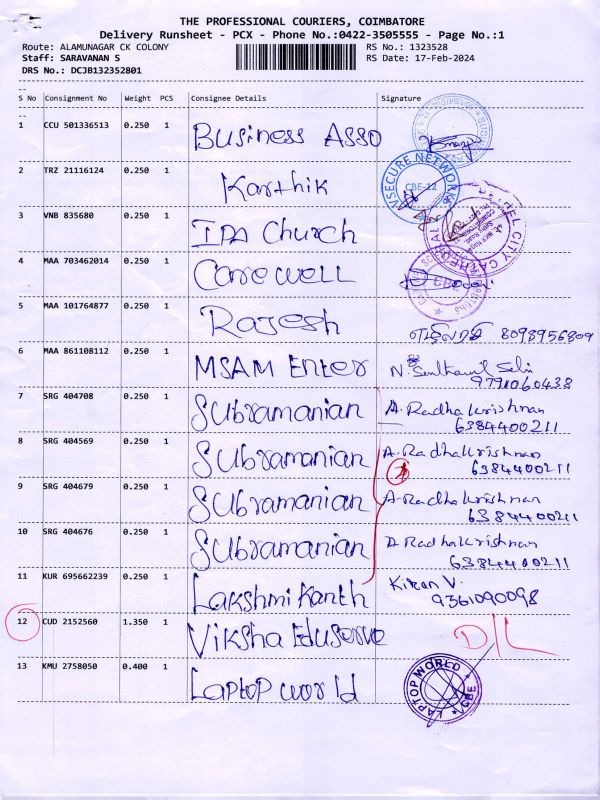 THE PROFESSIONAL COURIERS, COIMBATORE
Delivery Runsheet - PCX - Phone No.:0422-3505555 - Page No.:1
Route: ALAMUNAGAR CK COLONY RS No.: 1323528
Staff: SARAVANAN S RS Date: 17-Feb-2024
DRS No.: DCJB132352801
S No Consignment No Weight PCS Consignee Details Signature
1 CCU 501336513 0.250 1 Business Asso
2 TRZ 21116124 0.250 1 Karthik
SECURE NETWORK
CBE-12
3 VNB 835680 0.250 1 IPA Church
4 MAA 703462014 0.250 1 Carewell
CBE
5 MAA 101764877 0.250 1 Rajesh 8098956809
6 MAA 861108112 0.250 1 MSAM Enter N. Senthamil Selvi
9791060438
7 SRG 404708 0.250 1 Subramanian A. Radhakrishnan
6384400211
8 SRG 404569 0.250 1 Subramanian A. Radhakrishnan
6384400211
9 SRG 404679 0.250 1 Subramanian A. Radhakrishnan
6384400211
10 SRG 404676 0.250 1 Subramanian A Radhakrishnan
6384400211
11 KUR 695662239 0.250 1 Lakshmi Kanth Kiran V.
9361090098
12 CUD 2152560 1.350 1 Viksha Eduserve D/L
13 KMU 2758050 0.400 1 Laptop world LAPTOP WORLD CBE